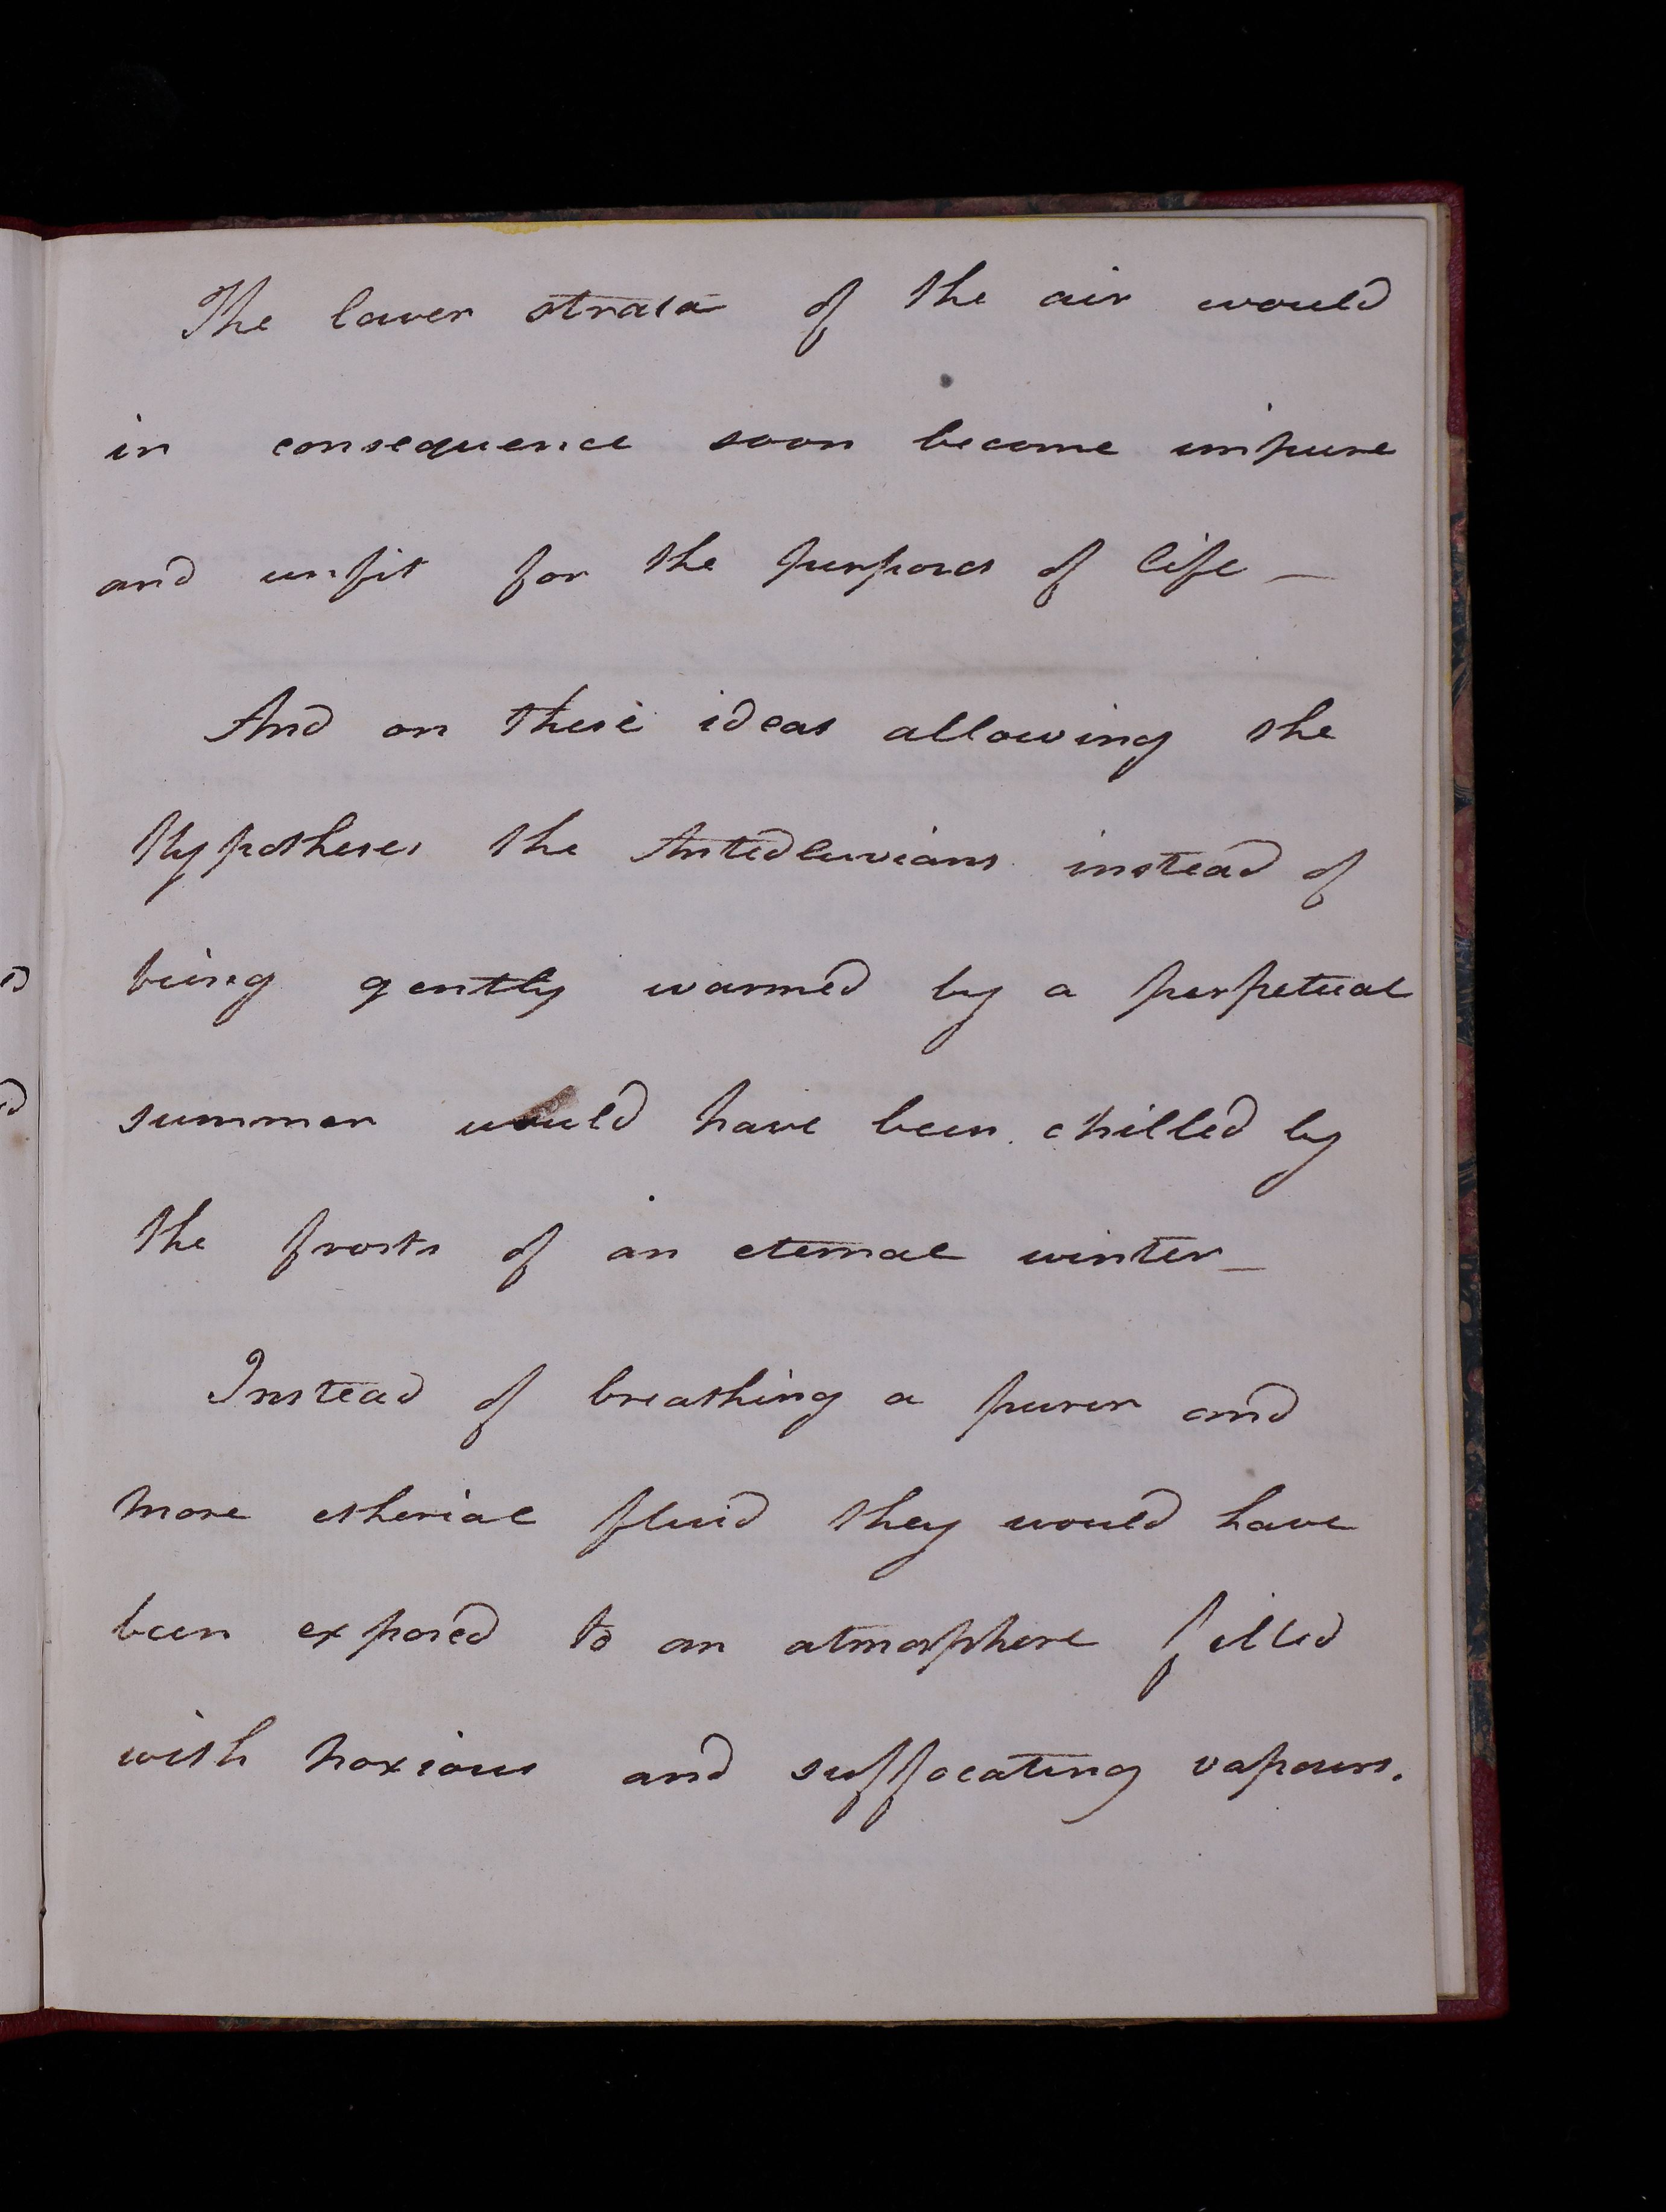 The lower strata of the air would
in consequence soon become impure
and unfit for the purposes of life –
And on these ideas allowing the
Hypotheses the Antedluvians instead of
being gently warmed by a perpetual
summer would have been chilled by
the frosts of an eternal winter –
Instead of breathing a purer and
more etherial fluid they would have
been exposed to an atmosphere filled
with noxious and suffocating vapours.